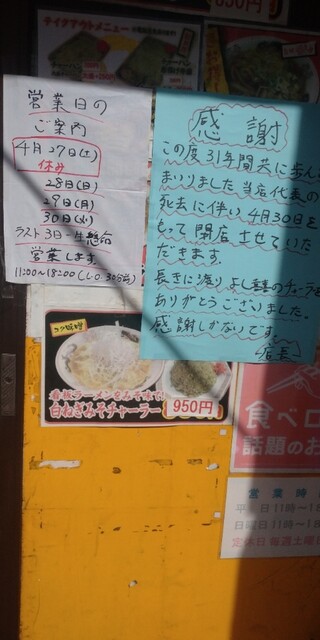 テイクアウトメニュー
850円
営業日の
ご案内
4月27日(土)
休み
28日(日)
29日(月)
30日(火)
ラスト3日一生懸命
営業します
11:00~18:00(L.O 30分前)
感謝
この度31年間共に歩ん
まいりました当店代表の
死去に伴い4月30日を
もって閉店させていた
だきます。
長きに渡り
ありがとうございました。
感謝しかないです。
店主
コク味噌
看板ラーメンをみそ味で!
白ねぎみそチャーラー
950円
食べロ
話題のお
営業時
平日11時~18
日曜日11時~18
定休日 毎週土曜